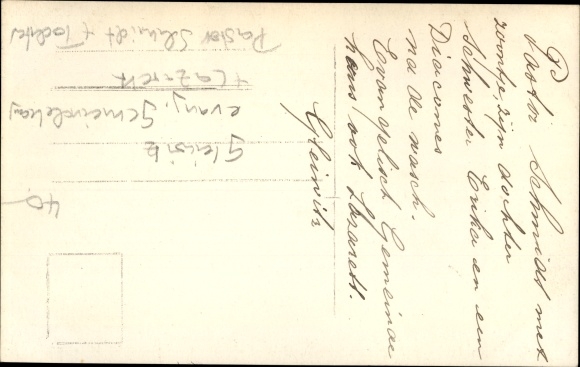 Pastor Schmidt met
zoontje, zijn dochter
Schwester Erika en een
Diacones
na de wasch.
Evangelisch Gemeinde
haus ook Lazarett.
Gleiwitz
Pastor Schmidt + Tochter
+ Lazarett
evang. Gemeindehaus
Gleiwitz
40